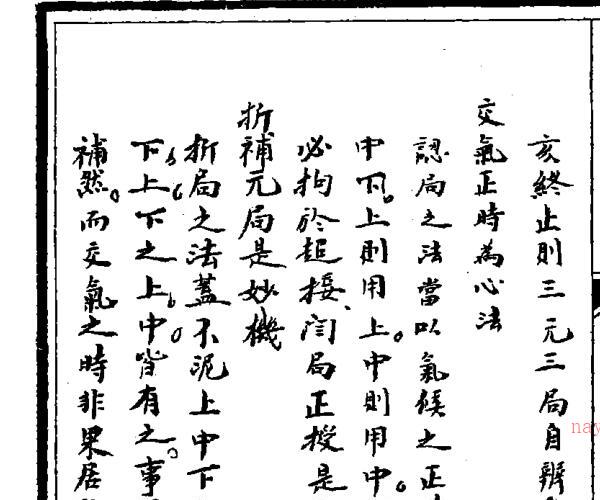 亥終止則三元三局自辨
交氣正時為心法
認局之法當以氣候之正
中下上則用上中則用中
必拘於超接閏局正授是
折補元局是妙機
折局之法蓋不泥上中下
下上下之上中皆有之事
補然而交氣之時非果居
nay